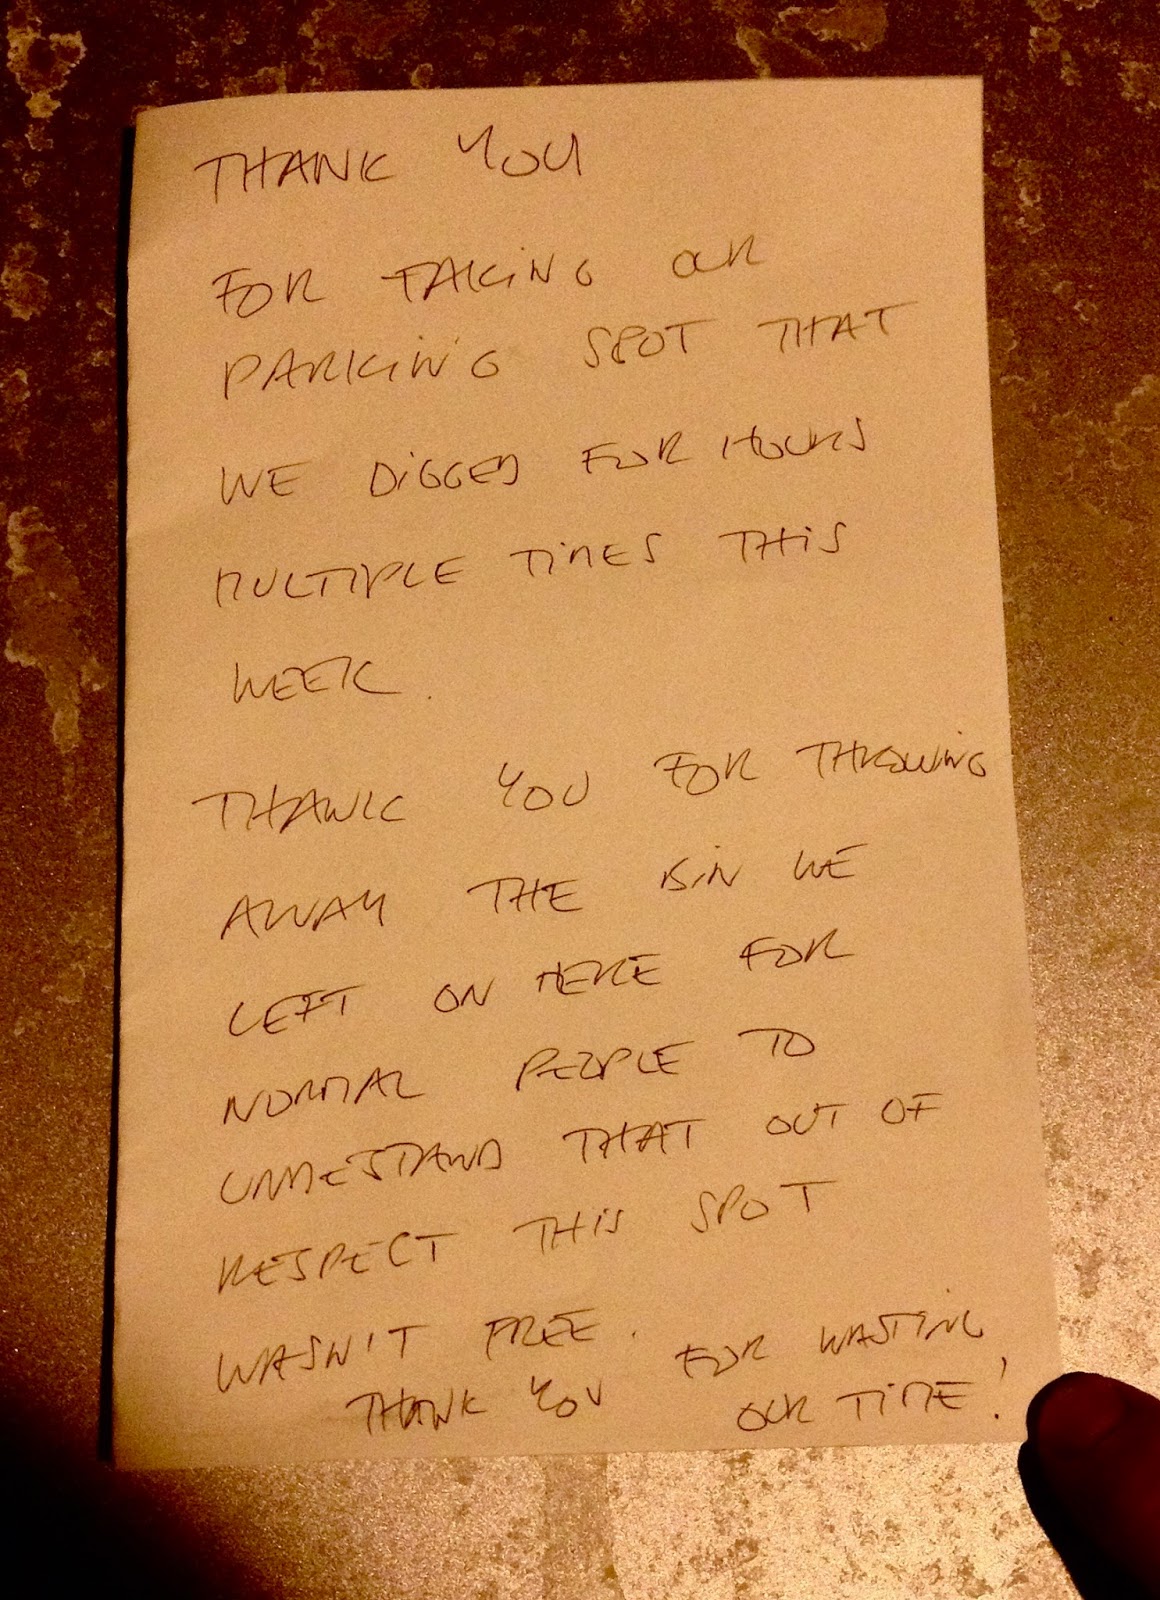 THANK YOU
FOR TAKING OUR
PARKING SPOT THAT
WE DIGGED FOR HOURS
MULTIPLE TIMES THIS
WEEK.
THANK YOU FOR THROWING
AWAY THE BIN WE
LEFT ON HERE FOR
NORMAL PEOPLE TO
UNDESTAND THAT OUT OF
RESPECT THIS SPOT
WASN'T FREE.
THANK YOU FOR WASTING
OUR TIME!